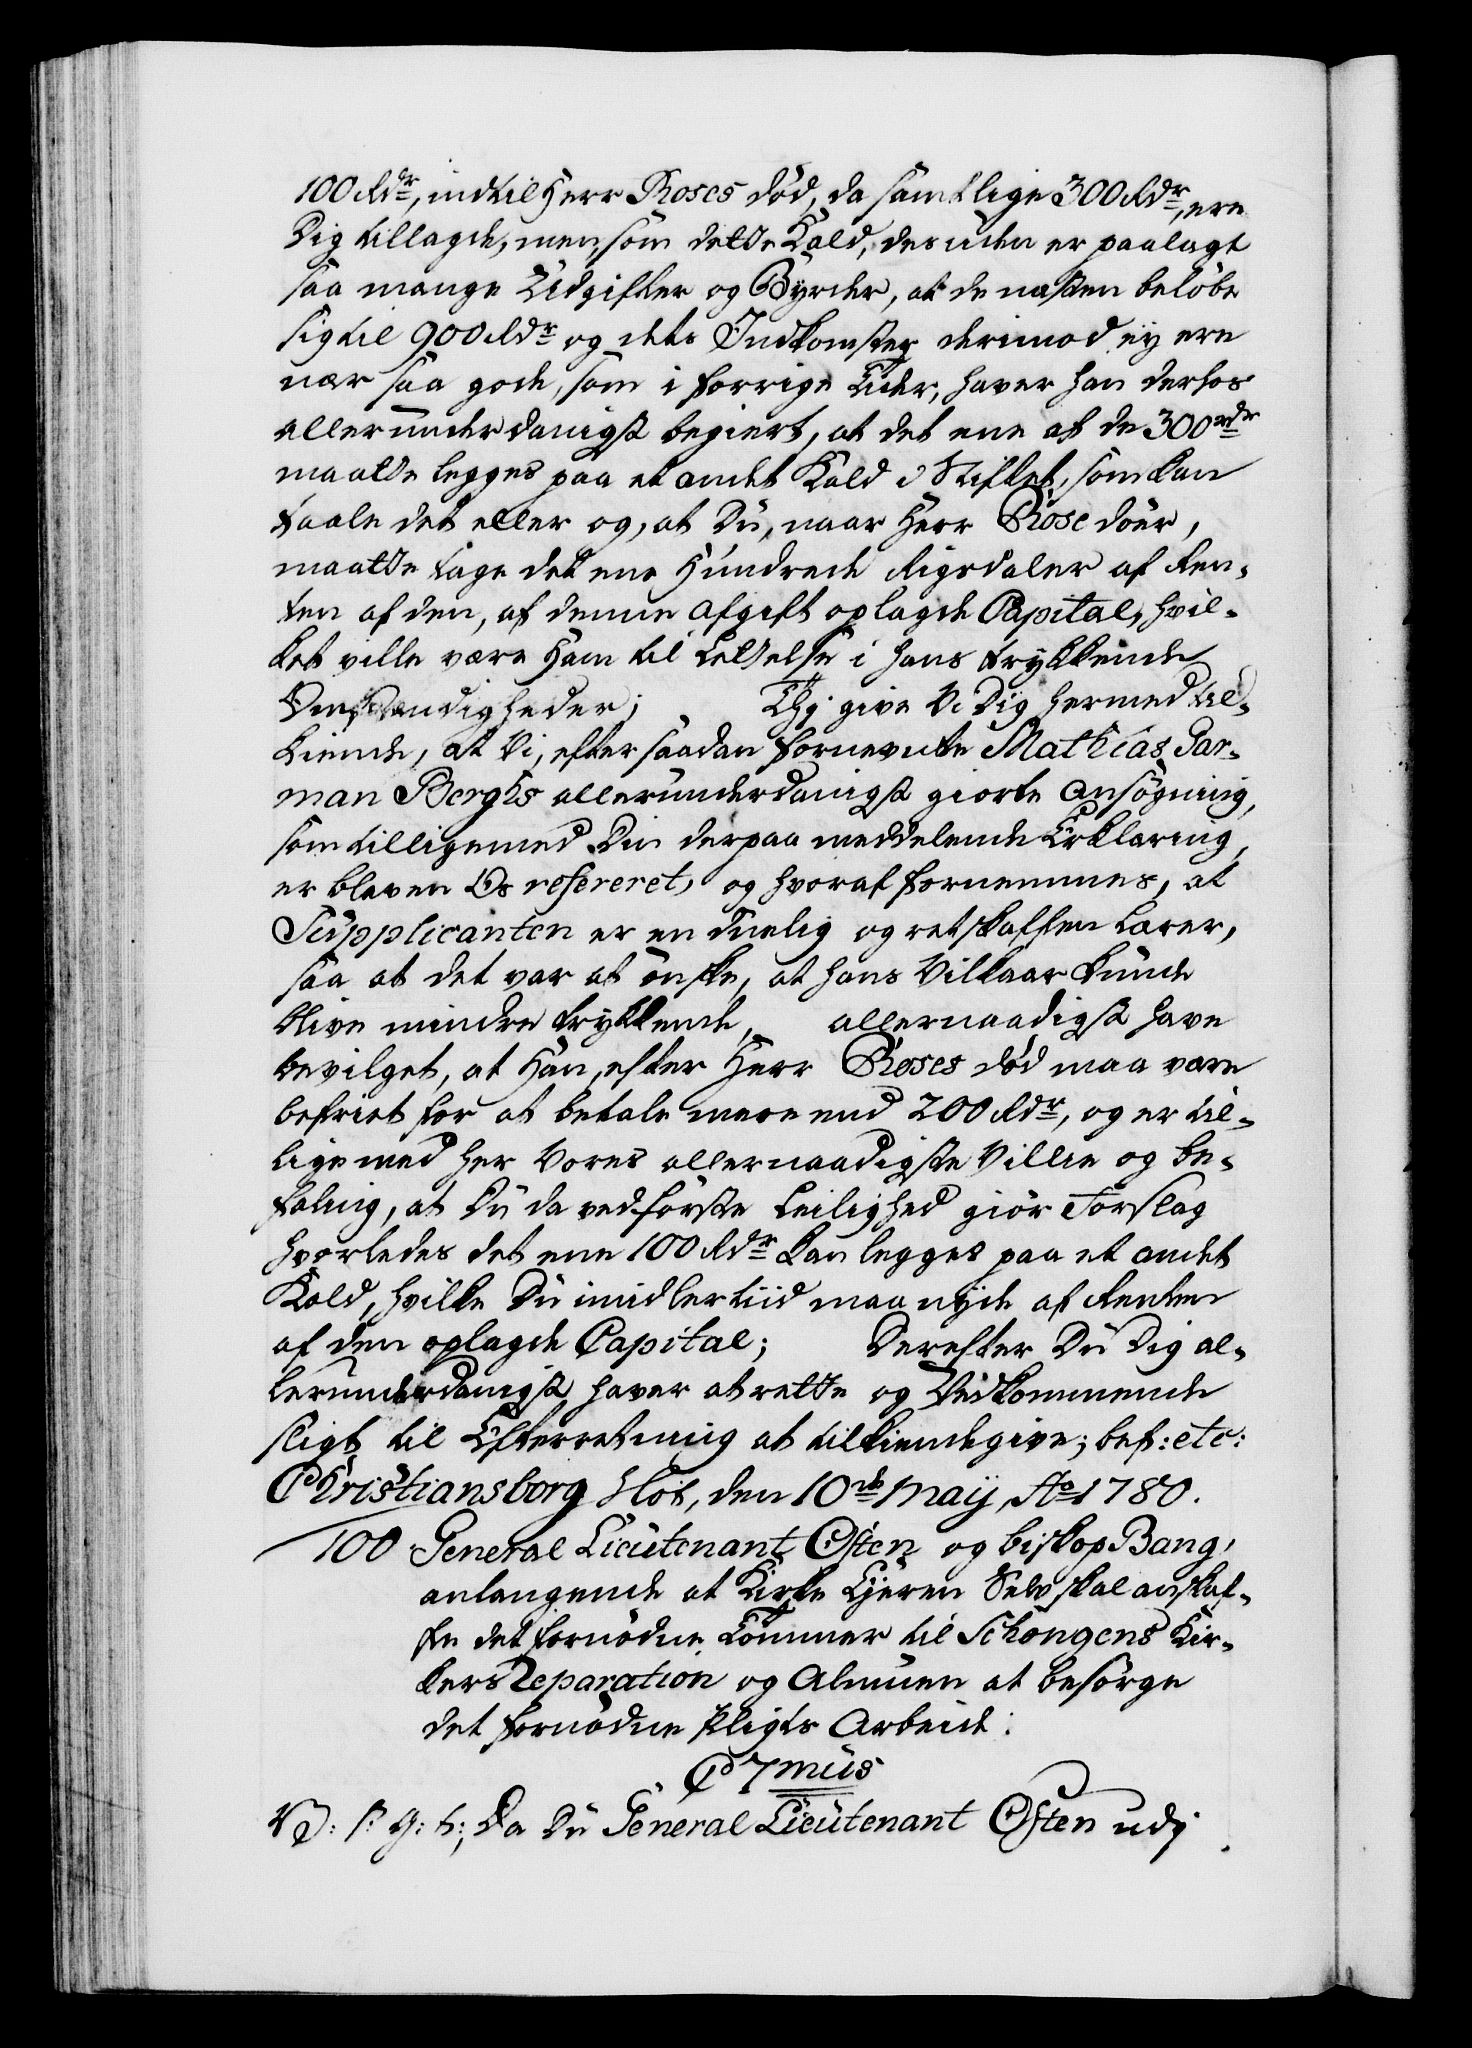 100 Rdr, indtil Herr Roses död, da samtlige 300 Rdr, ere
Dig tillagde, men, som dette Kald, desuden er paalagt
saa mange Udgifter og Byrder, at de næsten beløbe
sig til 900 Rdr og dets Indkomster derimod ey ere
nær saa gode, som i forrige Tider, haver han derhos
allerunderdanigst begiert, at det ene af de 300 rdr
maatte legges paa et andet Kald i Stiftet, som kan
taale det eller og, at Du, naar Herr Rose döer,
maatte tage det ene Hundrede Rigsdaler af Ren-
ten af den, af denne Afgift oplagde Capital, hvil-
ket ville være Ham til Lettelse i hans trykkende
Omstændigheder; Thj give Vi Dig hermed til-
kiende, at Vi, efter saadan fornevnte Mathias Gar-
man Berghs allerunderdanigst giorte Ansögning,
som tilligemed Din derpaa meddelende Erklæring,
er bleven Os refereret, og hvoraf fornemmes, at
Supplicanten er en duelig og retskaffen Lærer,
saa at det var at önske, at hans Vilkaar kunde
blive mindre trykkende, allernaadigst have
bevilget, at Han, efter Herr Roses död maa være
befriet for at betale mere end 200 Rdr, og er til-
lige med her Vores allernaadigste Villie og be-
faling, at Du da ved förste Leilighed giör Forslag
hvorledes det ene 100 Rdr kan legges paa et andet
Kald, hvilke Du imidlertiid maa nyde af Renten
af den oplagde Capital; Derefter Du Dig al-
lerunderdanigst haver at rette og Vedkommende
sligt til Efterretning at tilkiendegive; bef: etc:
Christiansborg Slot, den 10de Maij, Ao 1780.
100 General Lieutenant Osten og biskop Bang,
anlangende at Kirke Ejeren Selv skal anskaf-
fe det fornödne Tömmer til Schongens Kir-
kers Reparation og Almuen at besörge
det fornödne Pligts Arbeide:
C 7mus
V. S. G. T:, Da Du General Lieutenant Osten udj